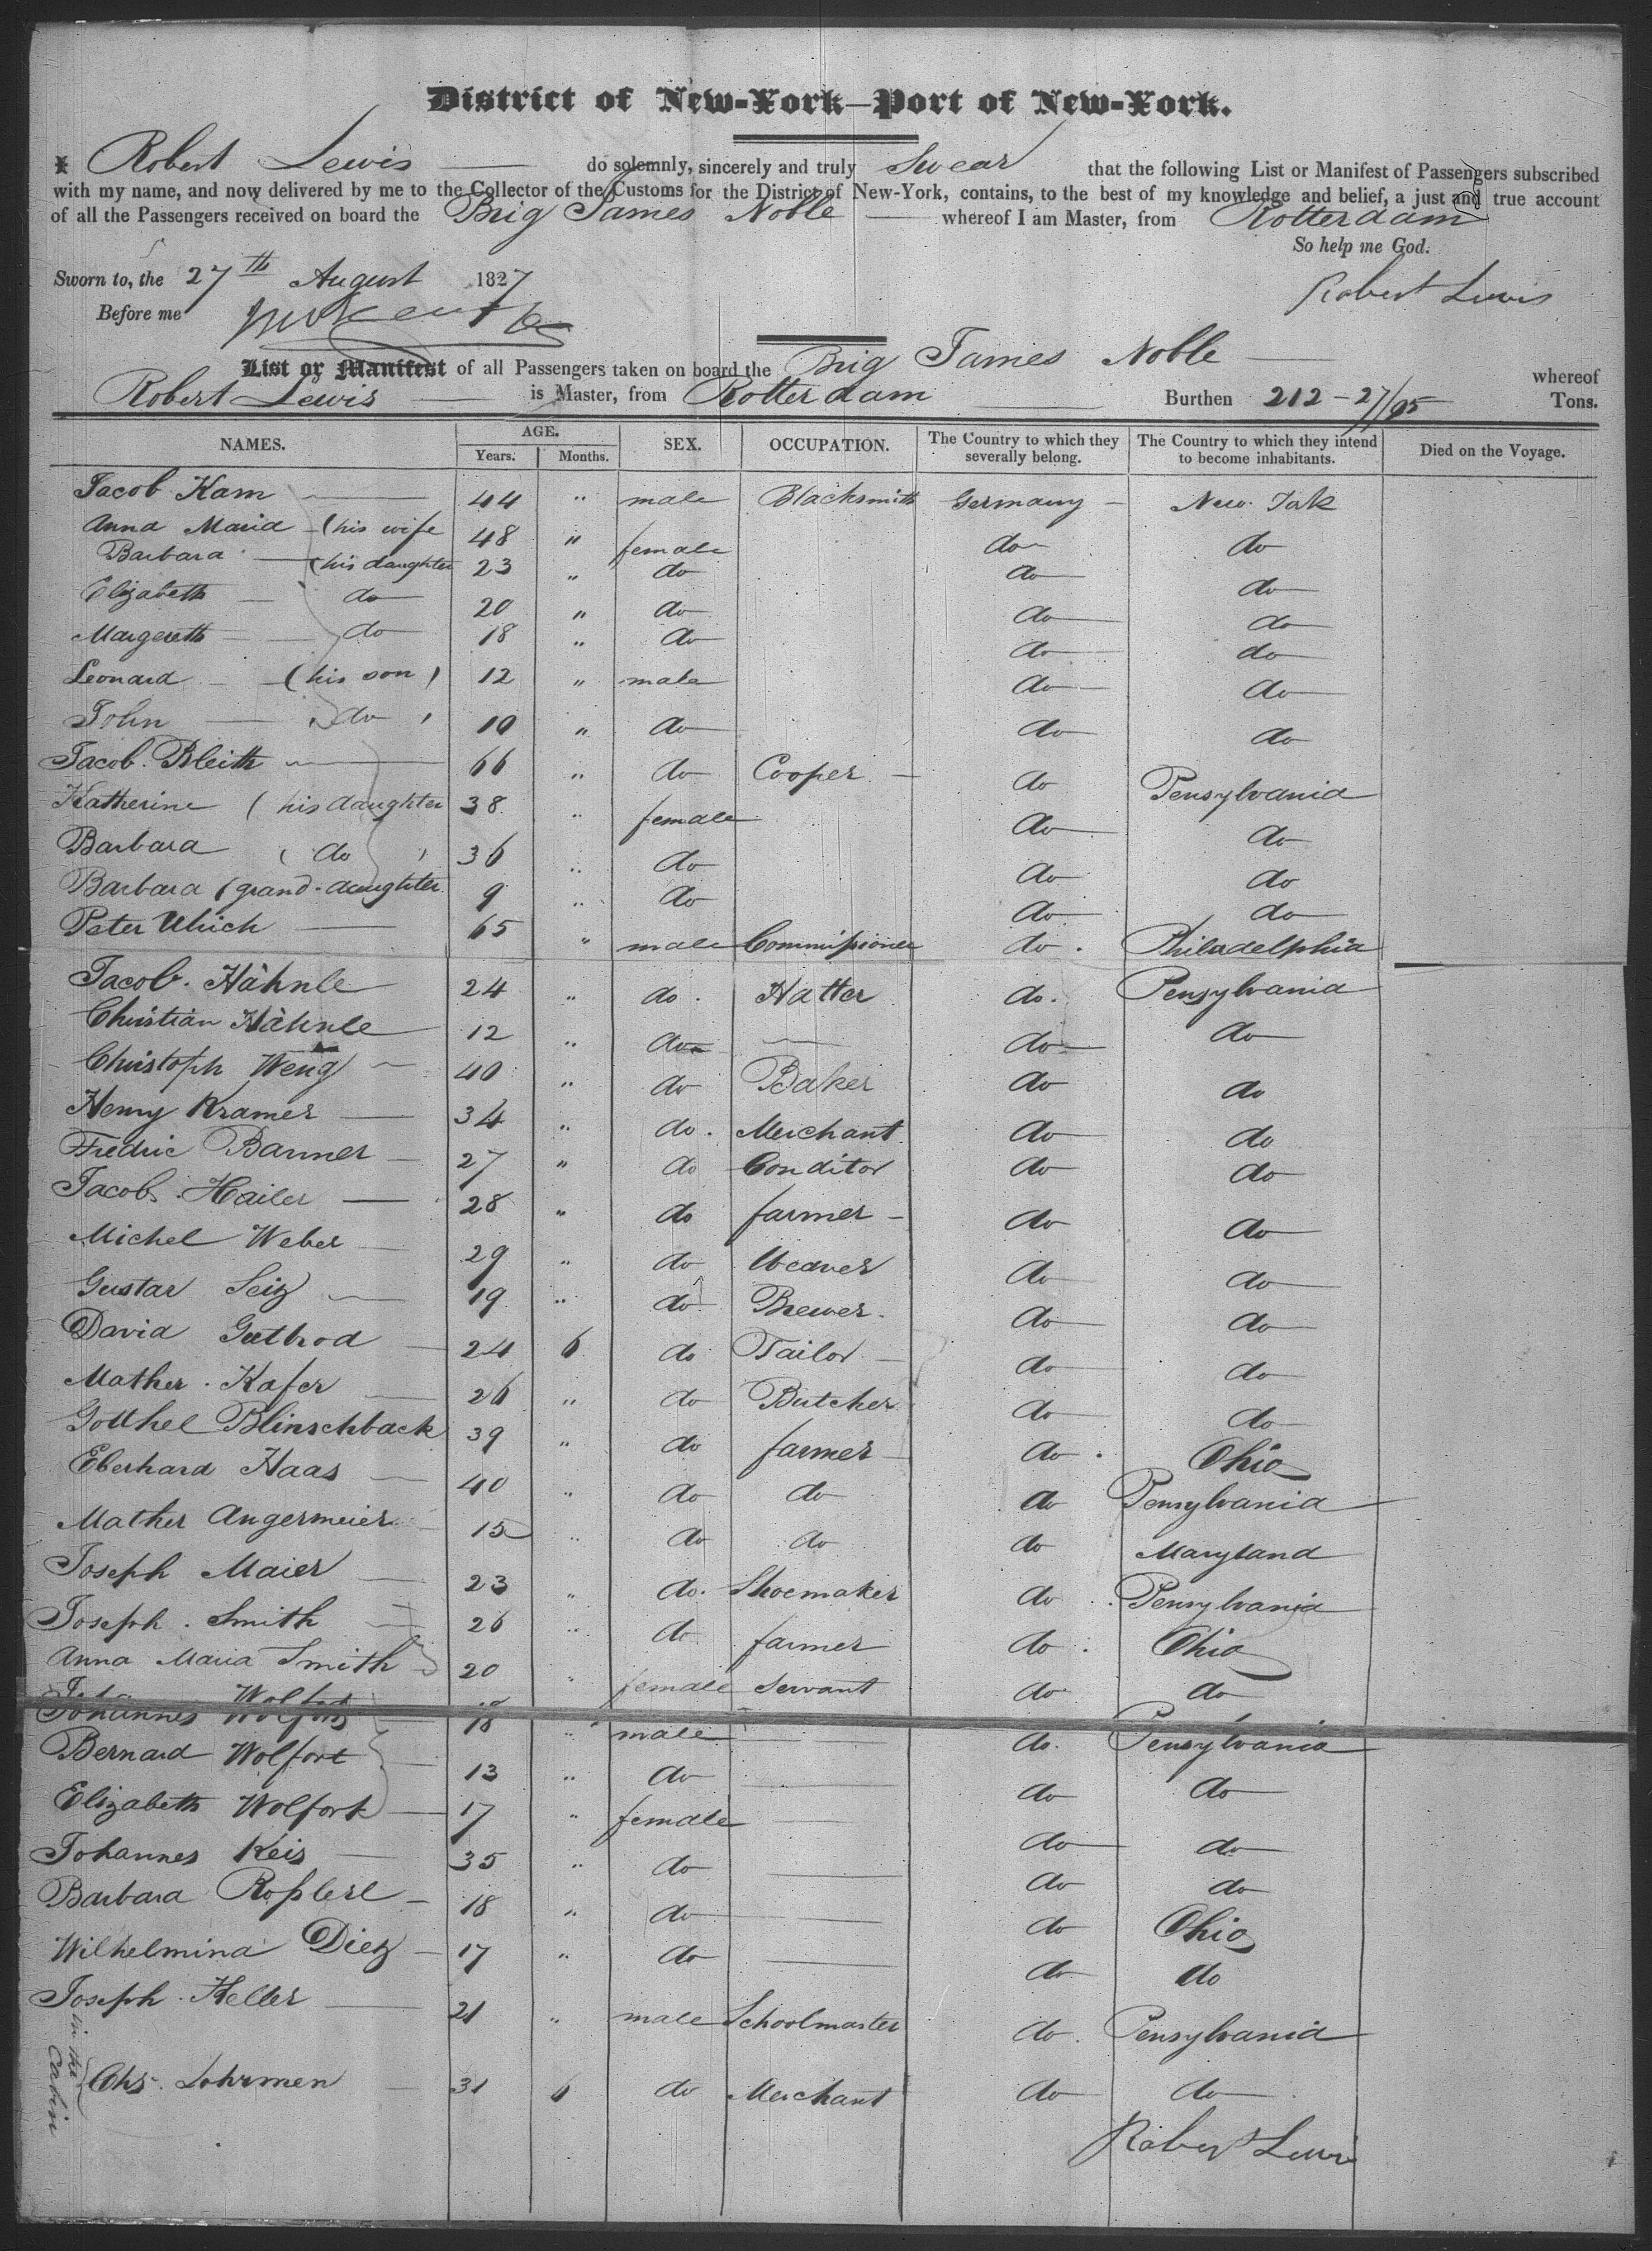 District of New-York—Port of New-York.
I Robert Lewis do solemnly, sincerely and truly Swear that the following List or Manifest of Passengers subscribed
with my name, and now delivered by me to the Collector of the Customs for the District of New-York, contains, to the best of my knowledge and belief, a just and true account
of all the Passengers received on board the Brig James Noble whereof I am Master, from Rotterdam
So help me God.
Sworn to, the 27th August 1827 Robert Lewis
Before me
List or Manifest of all Passengers taken on board the Brig James Noble whereof
Robert Lewis is Master, from Rotterdam Burthen 212-27/95 Tons.
NAMES. AGE. Years. Months. SEX. OCCUPATION. The Country to which they severally belong. The Country to which they intend to become inhabitants. Died on the Voyage.
Jacob Kam 44 " male Blacksmith Germany New York
Anna Maria (his wife 48 " female do do
Barbara (his daughter 23 " do do do
Elizabeth do 20 " do do do
Margereth do 18 " do do do
Leonard (his son) 12 " male do do
John do 10 " do do do
Jacob Bleith 66 " do Cooper do Pensylvania
Katherine (his daughter 38 " female do do
Barbara (do) 36 " do do do
Barbara (grand-daughter 9 " do do do
Peter Ulrich 65 " male Commissioner do Philadelphia
Jacob Hähnle 24 " do Hatter do Pensylvania
Christian Hähnle 12 " do do do
Christoph Weng 40 " do Baker do do
Henry Kramer 34 " do Merchant do do
Fredric Banner 27 " do Conditor do do
Jacob Hailer 28 " do farmer do do
Michel Weber 29 " do Weaver do do
Gustav Seiz 19 " do Brewer do do
David Gutbrod 24 6 do Tailor do do
Mather Kafer 26 " do Butcher do do
Gotthel Blinschback 39 " do farmer do Ohio
Eberhard Haas 40 " do do do Pensylvania
Mather Angermeier 15 " do do do Maryland
Joseph Maier 23 " do Shoemaker do Pensylvania
Joseph Smith 26 " do farmer do Ohio
Anna Maria Smith 20 " female Servant do do
Johannes Wolfort 18 " male do Pensylvania
Bernard Wolfort 13 " do do do
Elizabeth Wolfort 17 " female do do
Johannes Keis 35 " do do do
Barbara Roßlere 18 " do do Ohio
Wilhelmina Diez 17 " do do do
Joseph Keller 21 " male Schoolmaster do Pensylvania
in the Cabin
Chs. Lohrmen 31 6 do Merchant do do
Robert Lewis